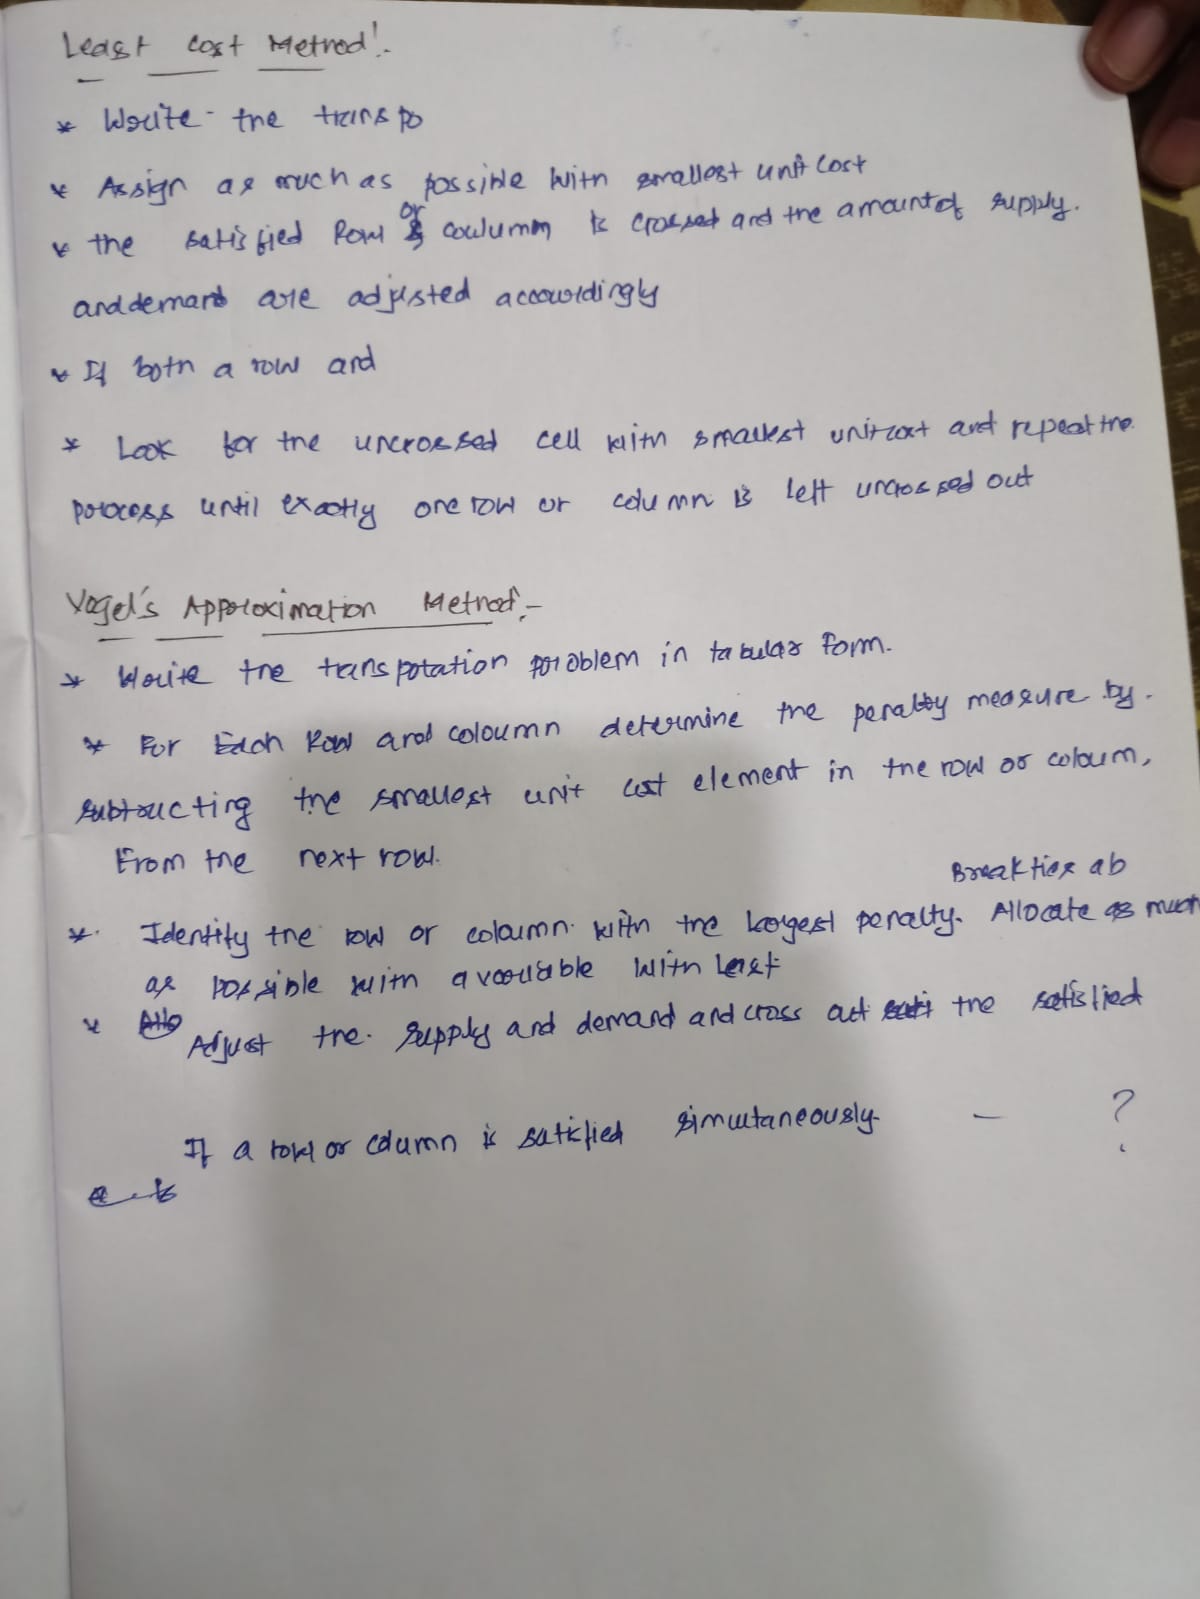 Least Cost Method:-
* Write the transpo
* Assign as much as possible with smallest unit cost
* the satisfied Row or coulumn is crossed and the amount of supply.
and demand are adjusted accourdingly
* If both a row and
* Look for the uncrossed cell with smallest unit cost and repeat the
process until exactly one row or column is left uncrossed out
Vogel's Approximation Method:-
* Write the transpotation problem in tabular form.
* For Each Row and coloumn determine the penalty measure by.
subtructing the smallest unit cost element in the row or coloum,
From the next row.
Break ties ab
* Identify the row or coloumn with the largest penalty. Allocate as much
as possible with avariable with least
* Adjust the supply and demand and cross out the satisfied
If a row or column is satisfied simultaneously - ?